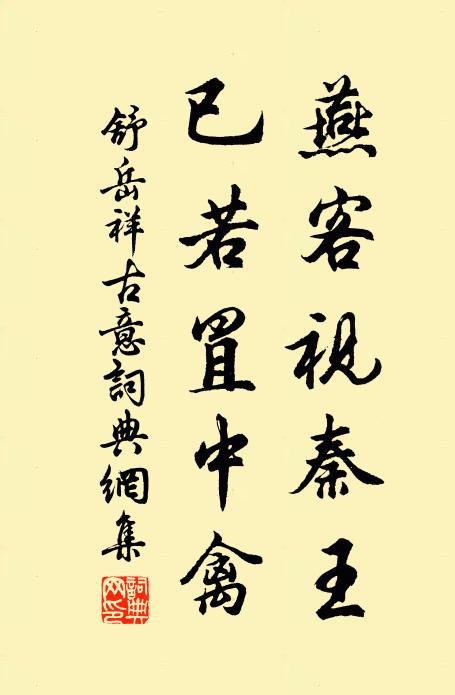 燕客視秦王
已若罝中禽
舒岳祥古意詞典網集
詞典網印